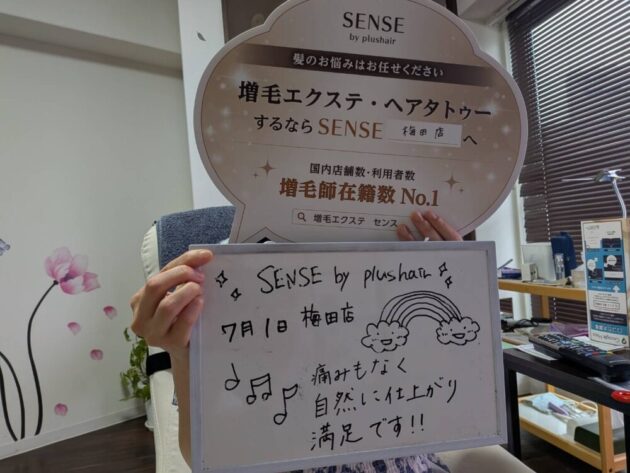 SENSE
by plushair
髪のお悩みはお任せください
増毛エクステ・ヘアタトゥー
するなら SENSE 梅田店 へ
国内店舗数・利用者数
増毛師在籍数 No.1
増毛エクステ センス
SENSE by plushair
7月1日 梅田店
痛みもなく
自然に仕上がり
満足です!!